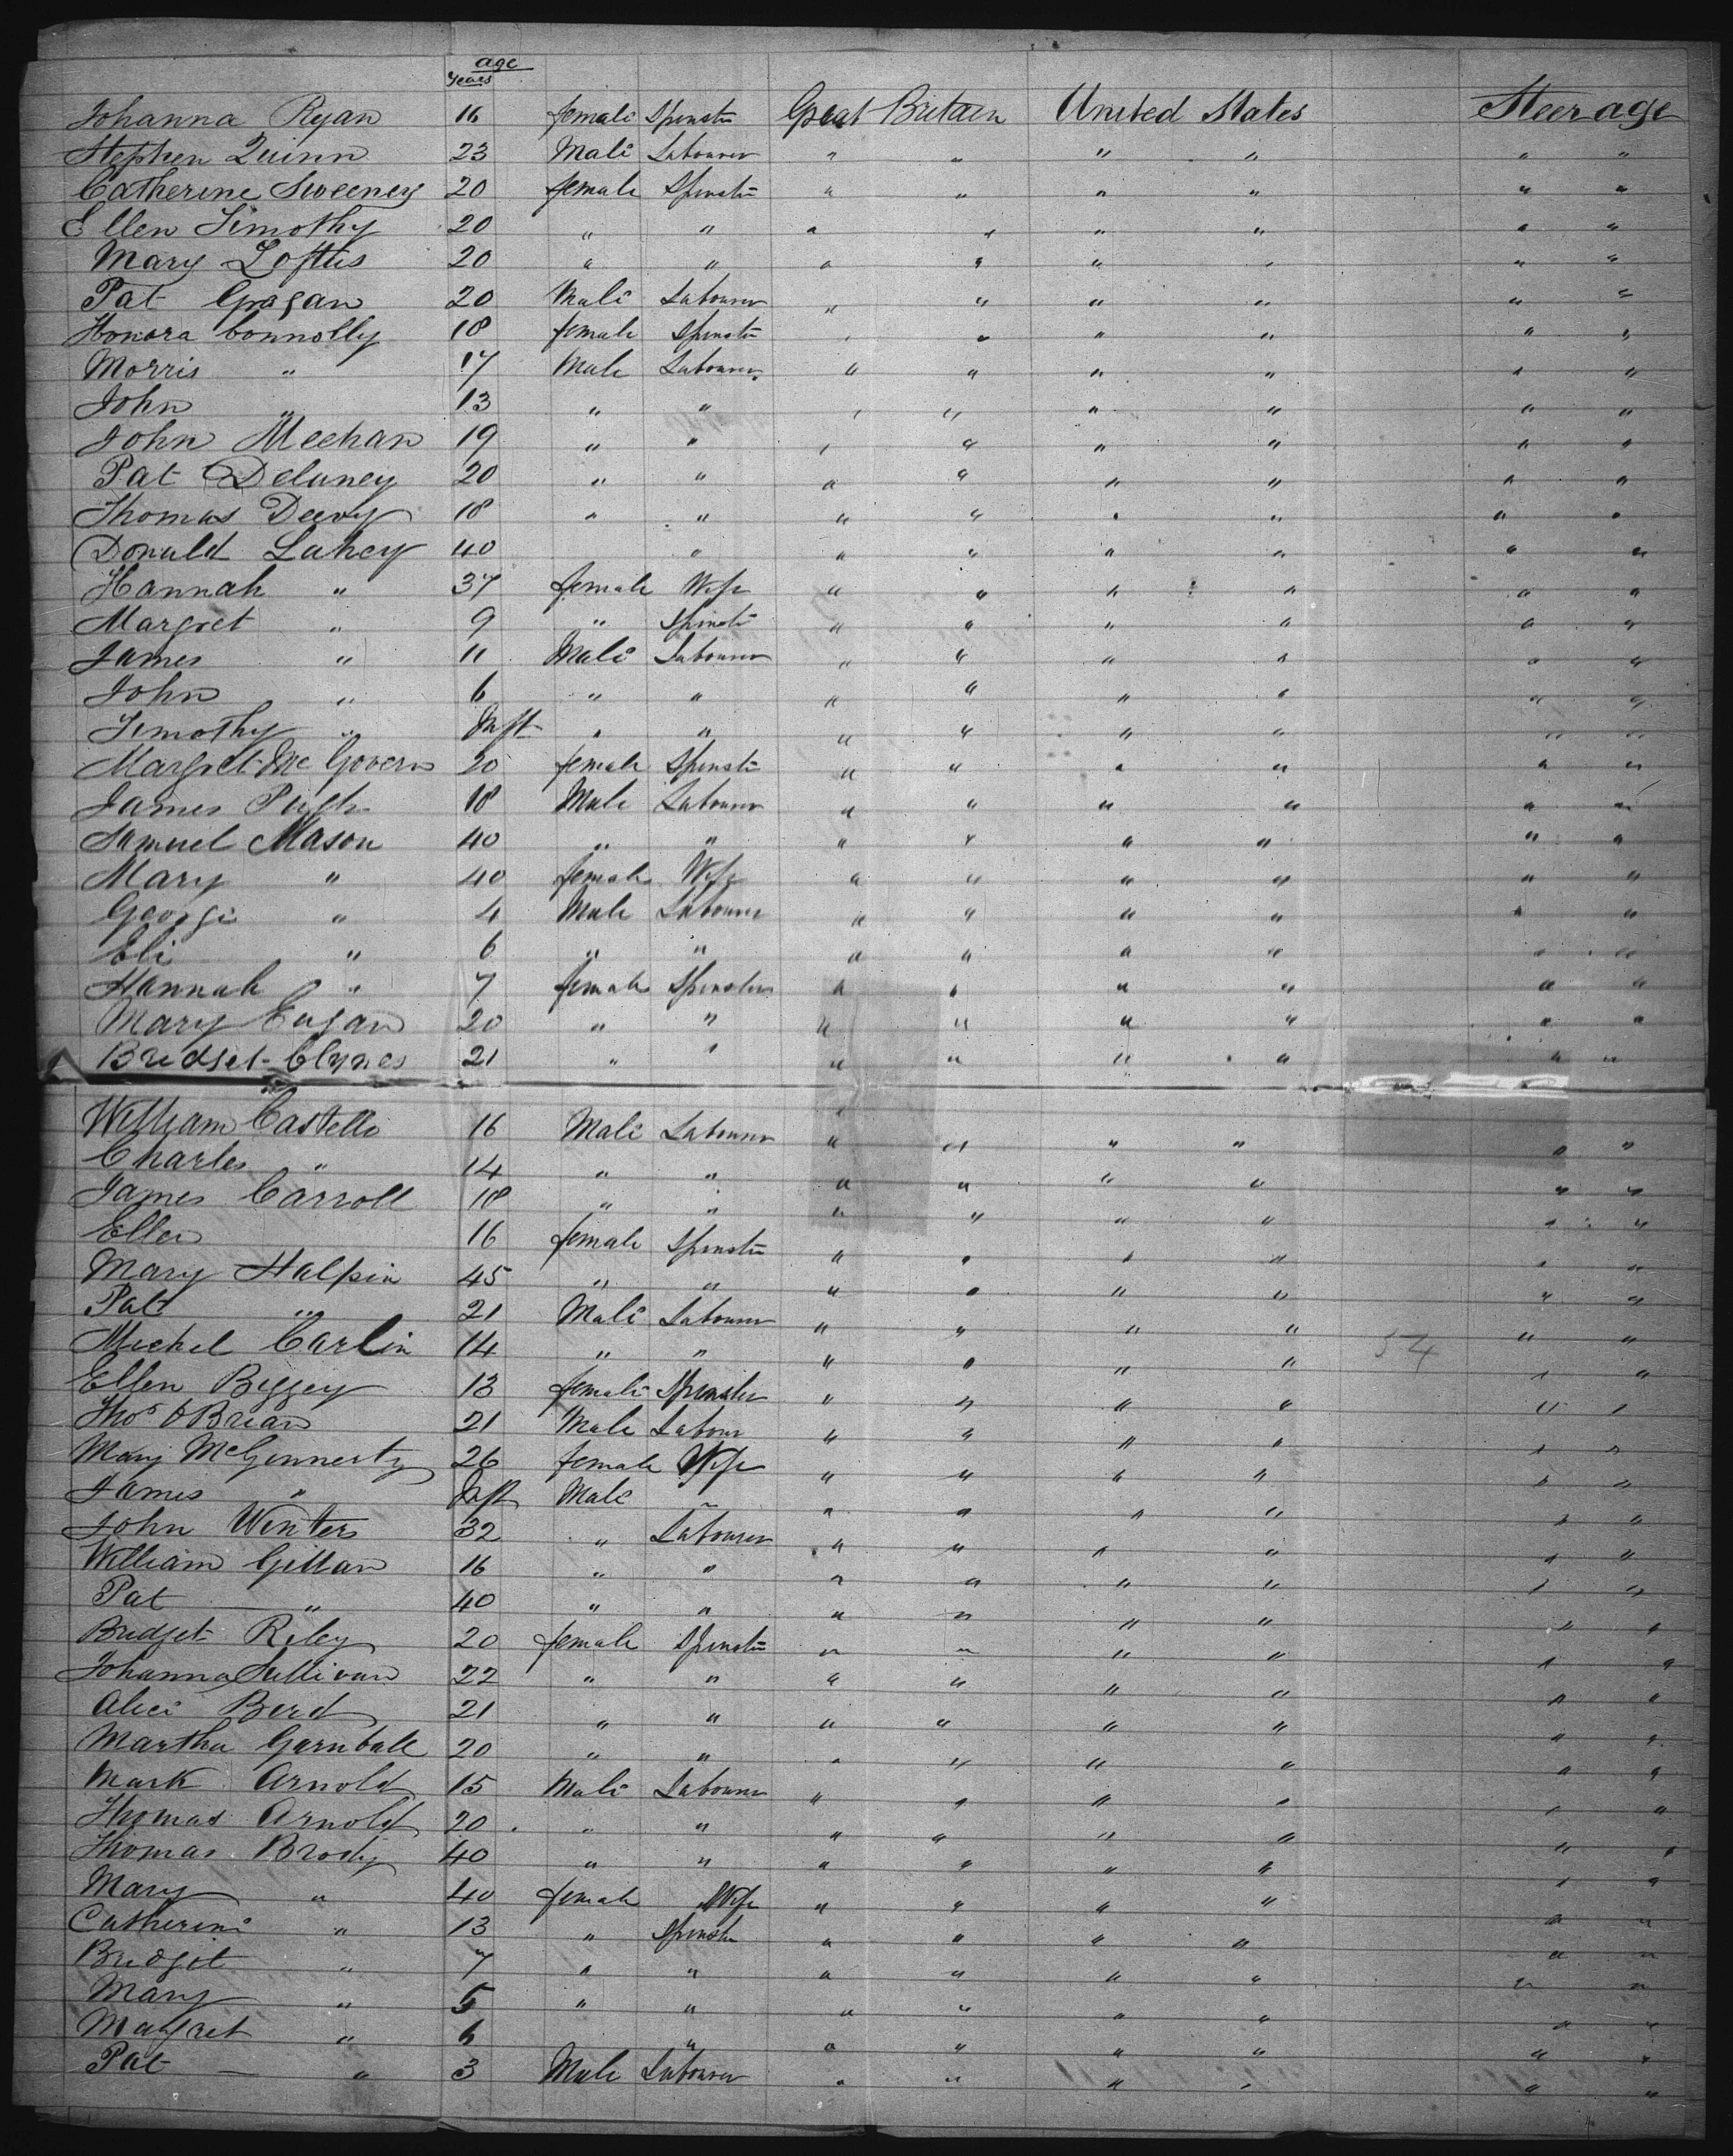 age
Years
Johanna Ryan 16 female Spinster Great Britain United States Steerage
Stephen Quinn 23 Male Labourer " " " " " "
Catherine Sweeney 20 female Spinster " " " " " "
Ellen Timothy 20 " " " " " " " "
Mary Loftus 20 " " " " " " " "
Pat Gragan 20 Male Labourer " " " " " "
Honora Connolly 18 female Spinster " " " " " "
Morris " 17 Male Labourer " " " " " "
John " 13 " " " " " " " "
John Meehan 19 " " " " " " " "
Pat Delaney 20 " " " " " " " "
Thomas Deevy 18 " " " " " " " "
Donald Lahey 40 " " " " " " "
Hannah " 37 female Wife " " " " " "
Margret " 9 " Spinster " " " " " "
James " 11 Male Labourer " " " " " "
John " 6 " " " " " " " "
Timothy " Inft " " " " " " " "
Margret McGovern 20 female Spinster " " " " " "
James Pugh 18 Male Labourer " " " " " "
Samuel Mason 40 " " " " " " " "
Mary " 40 female Wife " " " " " "
George " 4 Male Labourer " " " " " "
Eli " 6 " " " " " " " "
Hannah " 7 female Spinster " " " " " "
Mary Eagan 20 " " " " " " " "
Bridget Clynes 21 " " " " " " " "
William Castello 16 Male Labourer " " " " " "
Charles " 14 " " " " " " " "
James Carroll 18 " " " " " " " "
Ellen 16 female Spinster " " " " " "
Mary Halpin 45 " " " " " " " "
Pat " 21 Male Labourer " " " " " "
Michel Carlin 14 " " " " " " 54 " "
Ellen Beggey 13 female Spinster " " " " " "
Thos O'Brian 21 Male Labour " " " " " "
Mary McGennerty 26 female Wife " " " " " "
James " Inft Male " " " " " " "
John Winters 32 " Labourer " " " " " "
William Gillan 16 " " " " " " " "
Pat " 40 " " " " " " " "
Bridget Riley 20 female Spinster " " " " " "
Johanna Sullivan 22 " " " " " " " "
Alice Berd 21 " " " " " " " "
Martha Garnball 20 " " " " " " " "
Mark Arnold 15 Male Labourer " " " " " "
Thomas Arnold 20 " " " " " " " "
Thomas Brody 40 " " " " " " " "
Mary " 40 female Wife " " " " " "
Catherine " 13 " Spinster " " " " " "
Bridget " 7 " " " " " " " "
Mary " 5 " " " " " " " "
Margret " 6 " " " " " " "
Pat — " 3 Male Labourer " " " " " "